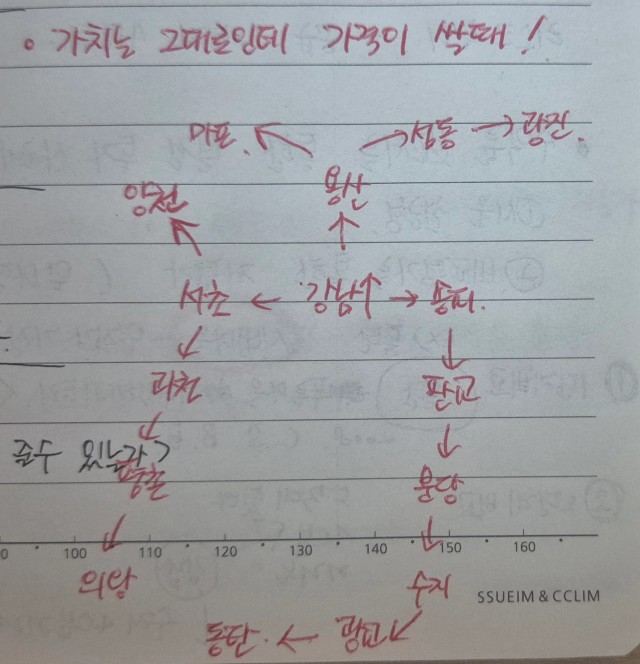 • 가치는 그대로인데 가격이 쌀때!
마포. ↖ → 성동 → 광진.
양천 용산
↖ ↑
서초 ← 강남↑ → 송파.
↙ ↓
과천 판교
↓ ↓
준수 있는가?
평촌 분당
↓ ↓
0 100 110 120 130 140 150 160
의왕 수지
SSUEIM & CCLIM
동탄. ← 광교 ↙